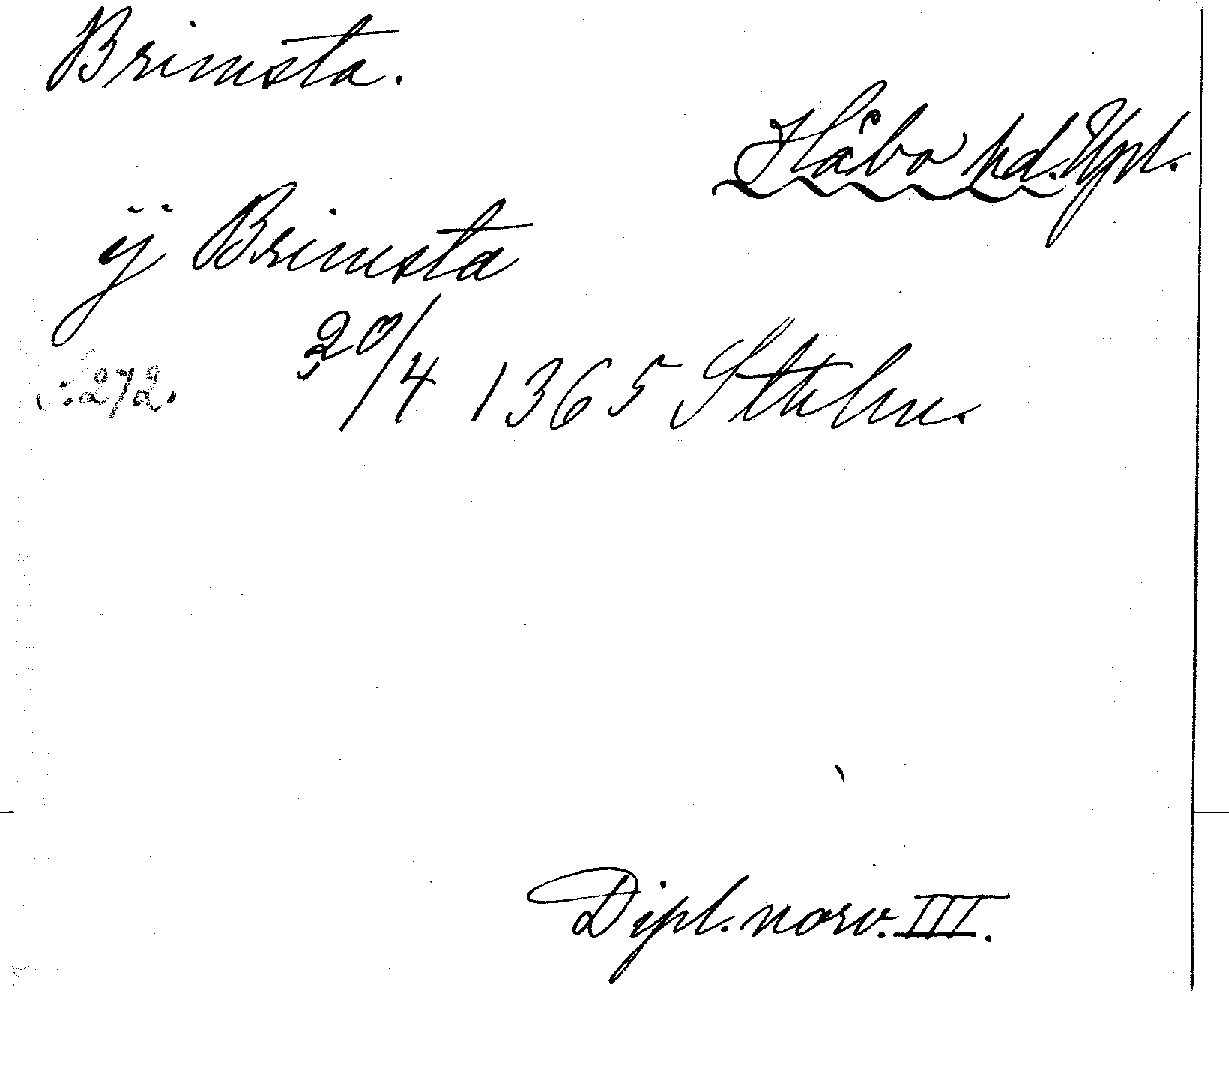 Brimsta.
Håbo hd. Upl.
ÿ Brimsta
20/4 1365 Sthlm.
s. 272.
Dipl. norv. III.